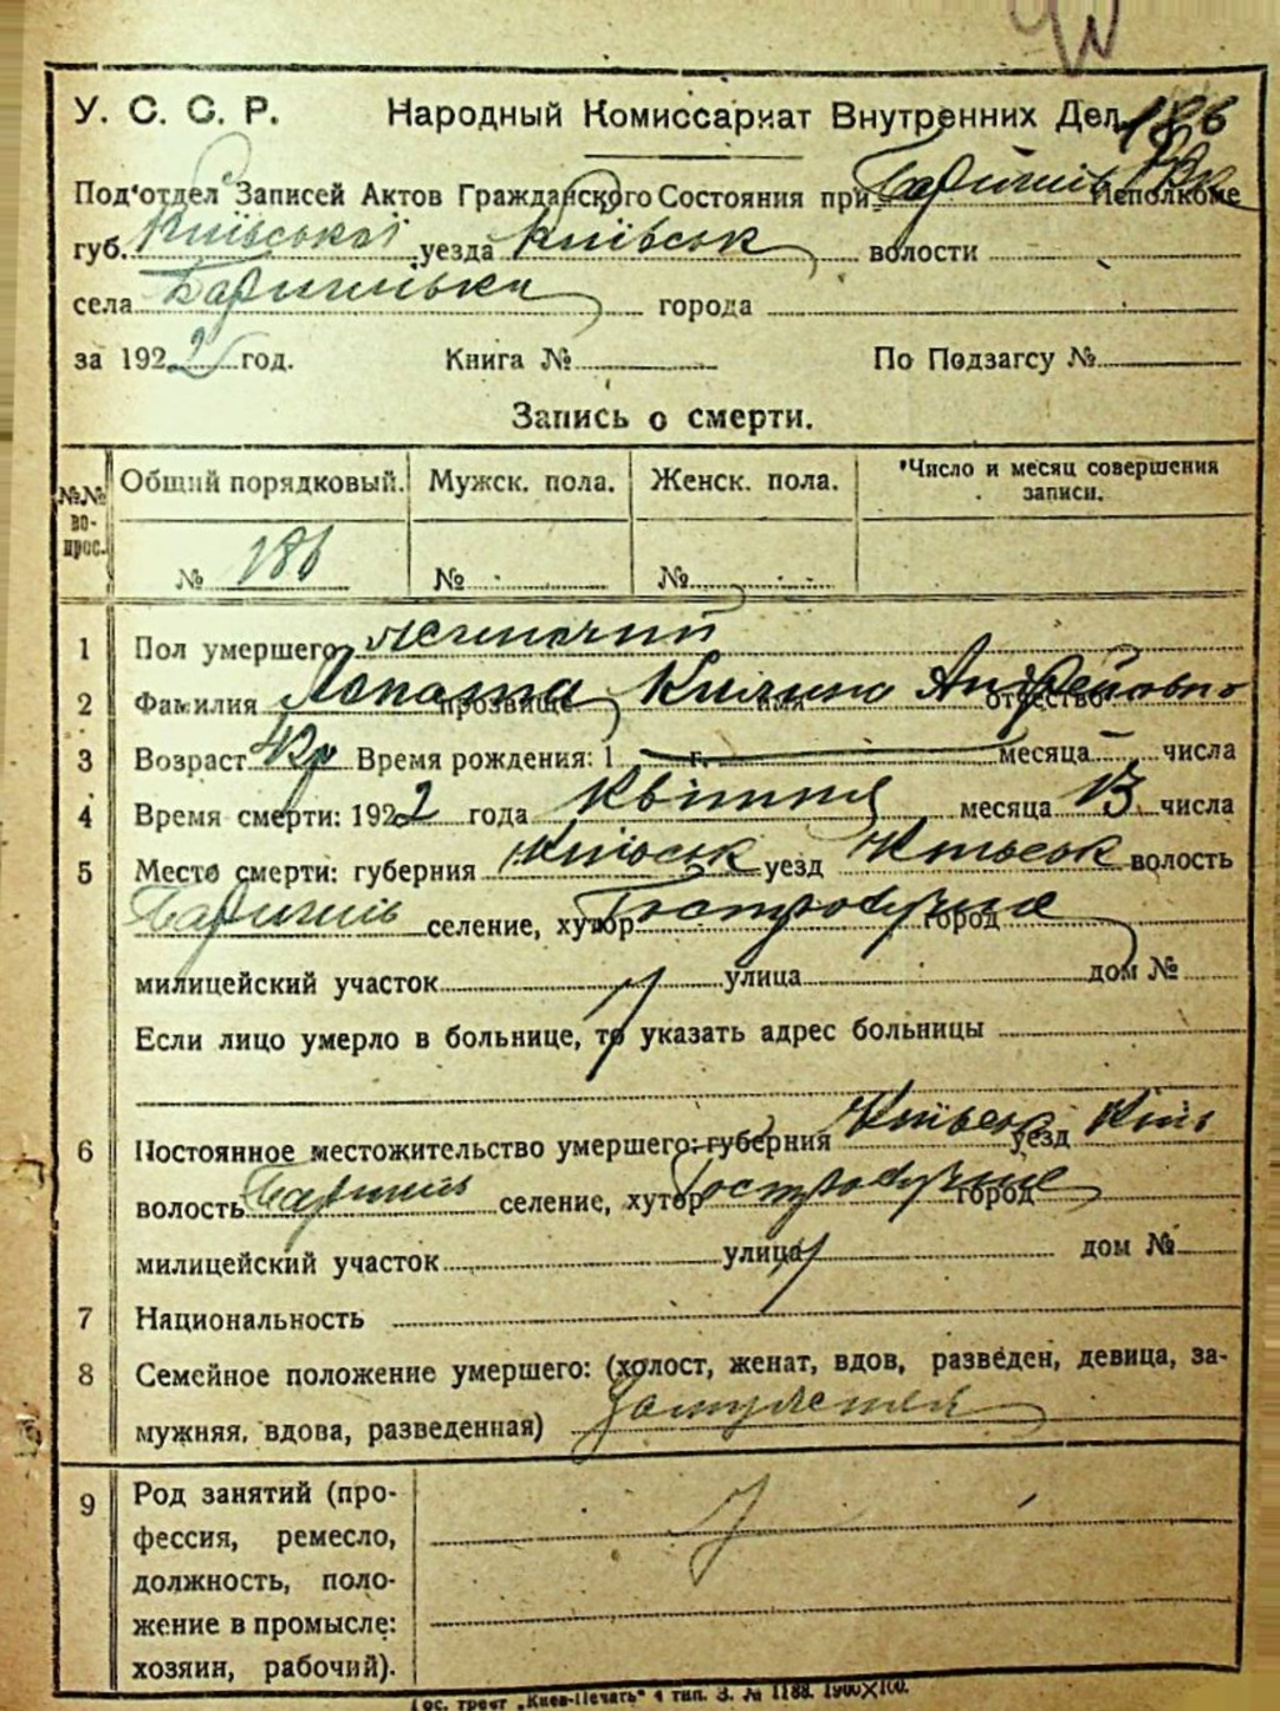 У. С. С. Р. Народный Комиссариат Внутренних Дел. 186
Под'отдел Записей Актов Гражданского Состояния при Исполкоме
губ. Київської уезда Київськ волости
села города
за 1922 год. Книга № По Подзагсу №
Запись о смерти.
№№ вопрос. Общий порядковый. Мужск. пола. Женск. пола. Число и месяц совершения записи.
№ 186 № №
1 Пол умершего
2 Фамилия Лопата прозвище Килина имя Андреевна отчество
3 Возраст Время рождения: 1 г. месяца числа
4 Время смерти: 1922 года Квітня месяца 13 числа
5 Место смерти: губерния Київськ уезд Київськ волость
селение, хутор город
милицейский участок улица дом №
Если лицо умерло в больнице, то указать адрес больницы
6 Постоянное местожительство умершего: губерния Київськ уезд Київ
волость селение, хутор город
милицейский участок улица дом №
7 Национальность
8 Семейное положение умершего: (холост, женат, вдов, разведен, девица, за-
мужняя, вдова, разведенная) Замужняя
9 Род занятий (про-
фессия, ремесло,
должность, поло-
жение в промысле:
хозяин, рабочий).
Гос. трест „Киев-Печать" 4 тип. З. № 1188. 1900×100.